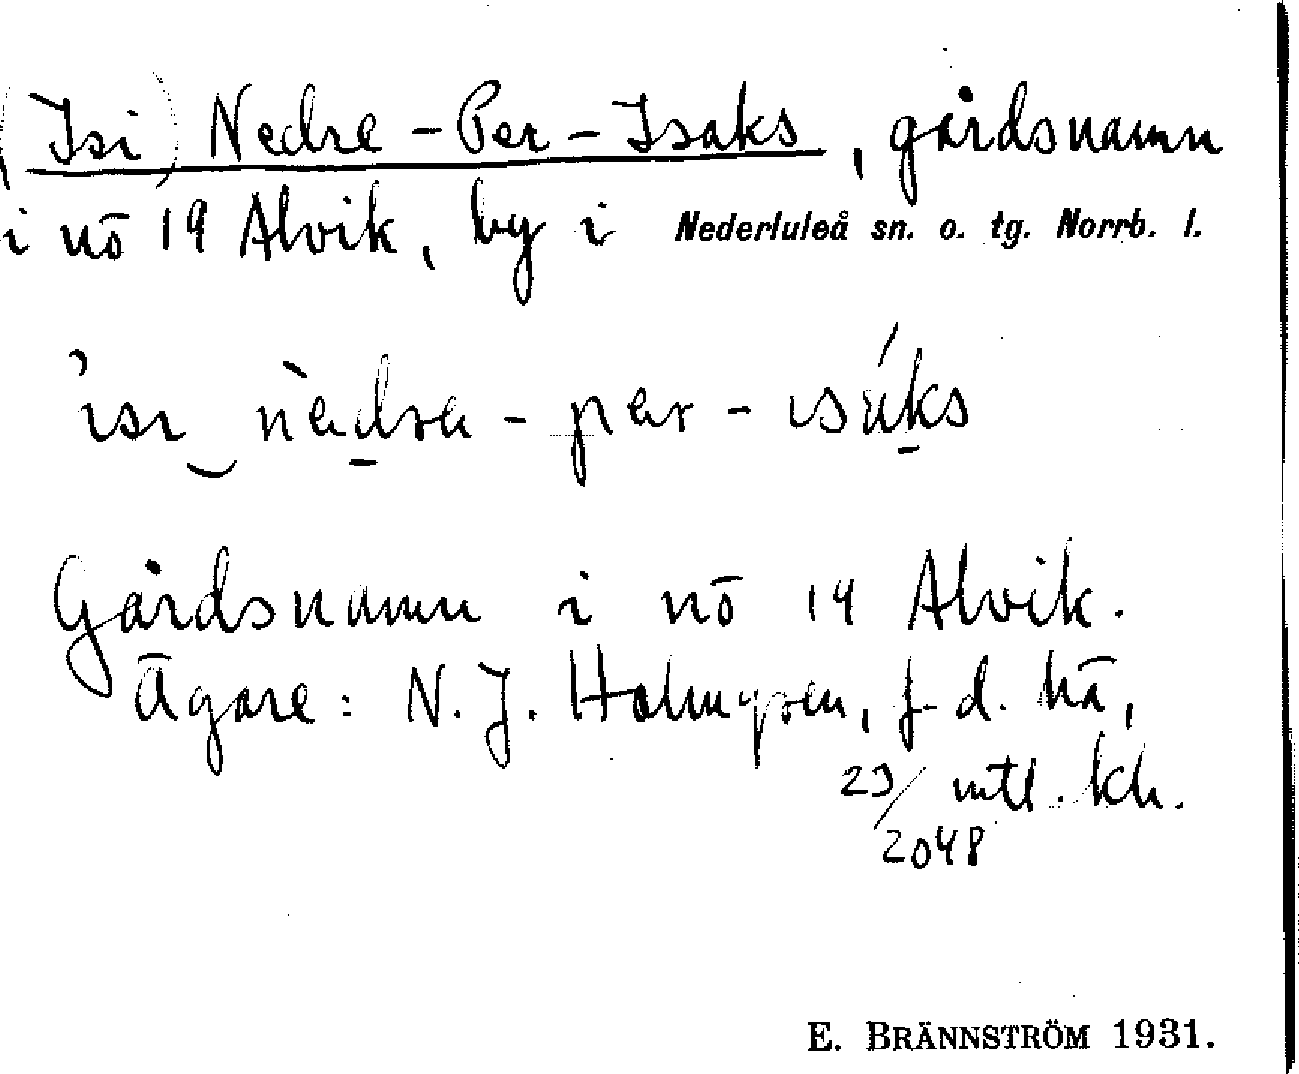 (Isi) Nedre-Per-Isaks, gårdsnamn
i nö 19 Alvik, by i Nederluleå sn. o. tg. Norrb. l.
Gårdsnamn i nö 14 Alvik.
Ägare: N. J. Holmgren, f d. hä,
23/2048 mtl. kh.
E. BRÄNNSTRÖM 1931.